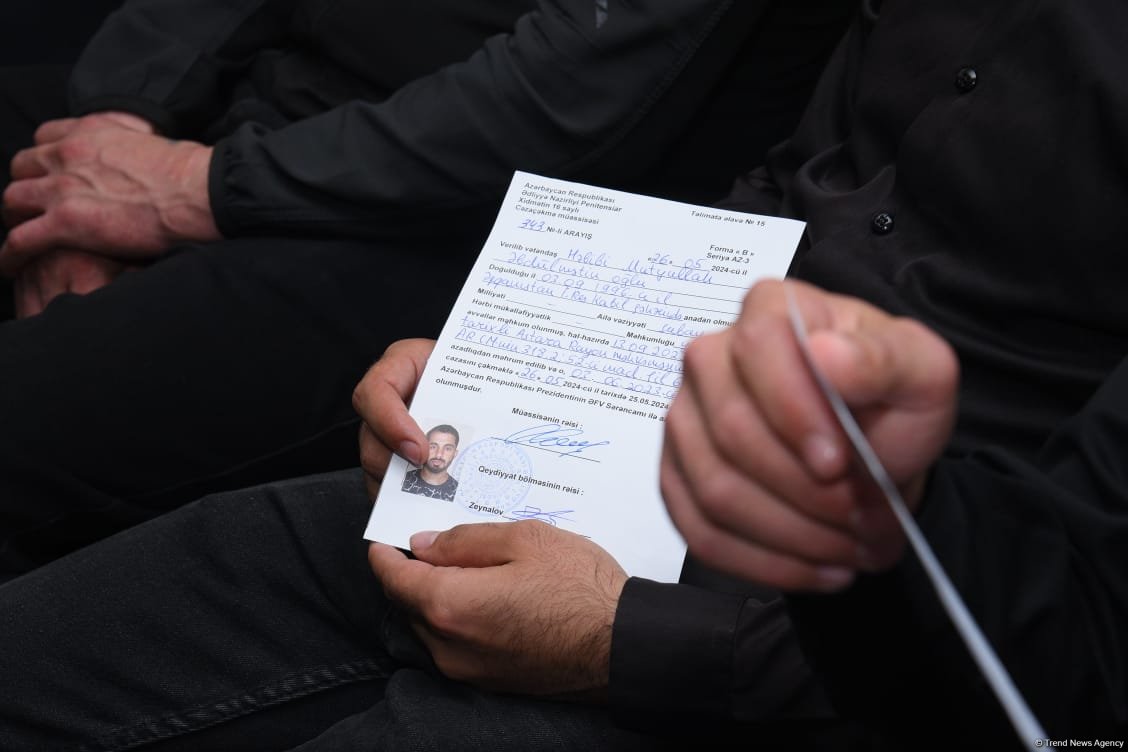 Azərbaycan Respublikası
Ədliyyə Nazirliyi Penitensiar
Xidmətin 16 saylı
Cəzaçəkmə müəssisəsi
Təlimata əlavə № 15
343 №-li ARAYIŞ
Forma « B »
Seriya AZ-3
«26» 05 2024-cü il
Verilib vətəndaş Həbibi Mutyullah
Əbdülmətin oğlu
Doğulduğu il 03.09.1996-cı il
Əfqanıstan / Kabil şəhərində anadan olmuş
Milliyəti - Ailə vəziyyəti subay
Hərbi mükəlləfiyyətlik Məhkumluğu
əvvəllər məhkum olunmuş, hal-hazırda 13.09.202
tarixli Astara Rayon məhkəməsinin
AR CM-nin 318.2; 
azadlıqdan məhrum edilib və o, 02.06.2023
cəzasını çəkməklə «26» 05 2024-cü il tarixdə 25.05.2024
Azərbaycan Respublikası Prezidentinin ƏFV Sərəncamı ilə
olunmuşdur.
Müəssisənin rəisi :
Qeydiyyat bölməsinin rəisi :
Zeynalov
© Trend News Agency